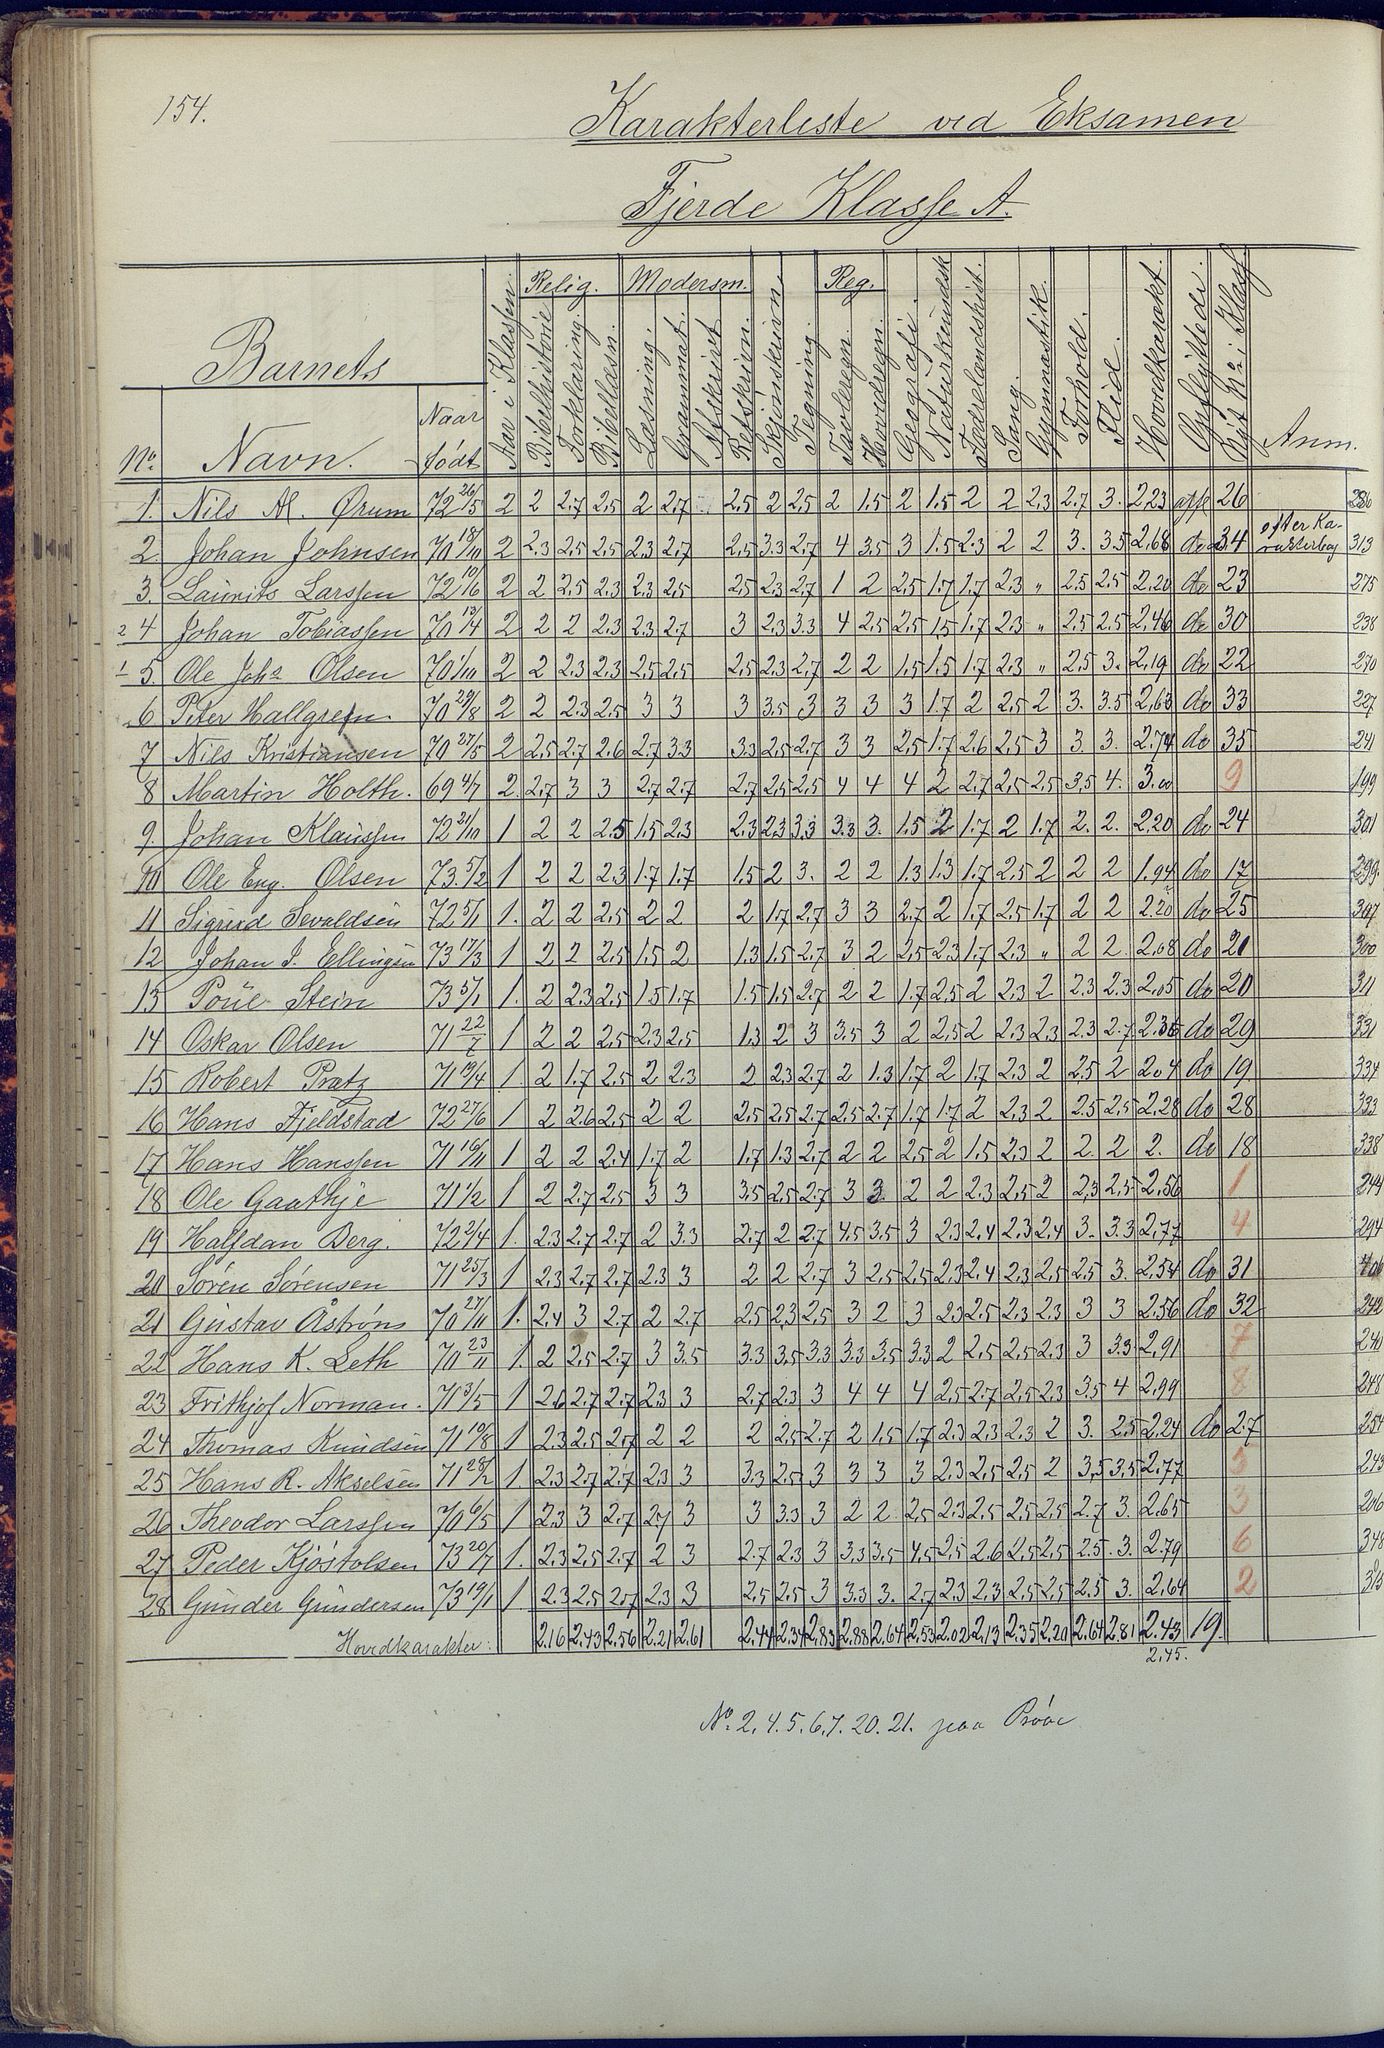 154.
Karakterliste ved Eksamen
Fjerde Klasse A.
Barnets
No. Navn. Naar født Aar i Klassen. Relig. Bibelhistorie Forklaring. Bibellæsn. Modersm. Læsning. Grammat. Afskrivt Retskrivn. Skjønskrivn. Tegning. Reg. Tavleregn. Hovedregn. Geografi. Naturkundsk Fædrelandshist. Sang. Gymnastik. Forhold. Flid. Hovedkarakt. Opflyttedi. Nyt No i Klass Anm.
1. Nils M. Ørum 72 26/5 2 2 2.7 2.5 2 2.7 2.5 2 2.5 2 1.5 2 1.5 2 2 2.3 2.7 3. 2.23 26 280
2. Johan Johnsen 70 18/10 2 2.3 2.5 2.5 2.3 2.7 2.5 3.3 2.7 4 3.5 3 1.5 2.3 2 2 3. 3.5 2.68 do 34 efter Ka- 313
3. Laurits Larssen 72 10/6 2 2 2.5 2.3 2.3 2.5 2.5 2.3 2.7 1 2 2.5 1.7 1.7 2.3 " 2.5 2.5 2.20 do 23 275
2 4 Johan Tobiassen 70 13/4 2 2 2 2.3 2.3 2.7 3 2.3 3.3 4 2.5 2.5 1.5 1.7 2.3 " 2.5 2.5 2.46 do 30 238
1 5. Ole Johs Olsen 70 1/10 2 2 2.3 2.3 2.5 2.5 2.5 2.3 2.7 2 2 1.5 1.5 1.7 2.3 " 2.5 3. 2.19 do 22 270
6 Peter Hallgren 70 29/8 2 2 2.3 2.5 3 3 3 3.5 3 3 3 3 1.7 2 2.5 2 3. 3.5 2.63 do 33 227
7 Nils Kristiansen 70 27/5 2 2.5 2.7 2.6 2.7 3.3 3.3 2.5 2.7 3 3 2.5 1.7 2.6 2.5 3 3. 3. 2.74 do 35 241
8 Martin Holth. 69 4/7 2. 2.7 3 3 2.7 2.7 2.7 2.5 2.5 4 4 4 2 2.7 2.5 2.5 3.5 4. 3.00 9 199
9 Johan Klaussen 72 21/10 1 2 2 2.5 1.5 2.3 2.3 2.3 3.3 3.3 3. 1.5 2 1.7 2 1.7 2. 2. 2.20 do 24 301
10 Ole Eng. Olsen 73. 5/2 1 2 2 2.3 1.7 1.7 1.5 2 3. 2 2 1.3 1.3 1.7 2.5 2 2 2 1.94 do 17 299.
11 Sigurd Sevaldsen 72 5/1 1. 2 2 2.5 2 2 2 1.7 2.7 3 3 2.7 2 1.7 2.5 1.7 2 2 2.20 do 25 307
12 Johan J. Ellingsen 73 17/3 1 2 2 2.5 1.5 2 1.3 1.5 2.7 3 2 2.5 2.3 1.7 2.3 " 2 2. 2.08 do 21 300
13 Poul Stein 73 5/1 1. 2 2.3 2.5 1.5 1.7 1.5 1.5 2.7 2 2 1.7 2.5 2 2.3 2 2.3 2.3 2.05 do 20 311
14 Oskar Olsen 71 22/7 1 2 2 2.5 2.3 2.5 1.3 2 3 3.5 3 2 2.5 2 2.3 2.3 2.3 2.7 2.36 do 29 331
15 Robert Pratz 71 19/4 1. 2 1.7 2.5 2 2.3 2 2.3 2.7 2 1.3 1.7 2 1.7 2.3 2 2.5 2 2.04 do 19. 334
16 Hans Fjeldstad 72 27/6 1 2 2.6 2.5 2 2 2.5 2.5 2.7 2.5 2.7 1.7 1.7 2 2.3 2 2.5 2.5 2.28 do 28 333
17 Hans Hanssen 71 16/11 1 2 2 2.4 1.7 2 1.7 1.3 2.7 2 2 2.5 2 1.5 2.3 2 2. 2 2. do 18 338
18 Ole Gaathje 71 1/2 1 2 2.7 2.5 3 3 3.5 2.5 2.7 3 3. 2 2 2.3 2.5 2 2.3 2.5 2.56 1 244
19 Halfdan Berg. 72 2/4 1. 2.3 2.7 2.7 2 3.3 2.7 2 2.7 4.5 3.5 3 2.3 2.4 2.3 2.4 3. 3.3 2.77 4 294
20 Søren Sørensen 71 25/3 1 2.3 2.7 2.7 2.3 3 2 2 2.7 3 2.5 2.5 2.3 2.4 2.3 2.5 2.5 3. 2.54 do 31
21 Gustav Åstrøm 70 27/11 1. 2.4 3 2.7 2 2.7 2.5 2.3 2.5 3 2 3 2.3 2.5 2.3 2.3 3 3 2.56 do 32 242
22 Hans K. Leth 70 23/11 1. 2 2.5 2.7 3 3.5 3.3 3.5 3.3 3.3 3.5 3.3 2 2.5 2.5 2.3 3 3.3 2.91 7 240
23 Frithjof Norman. 71 3/5 1 2.6 2.7 2.7 2.3 3 2.7 2.3 3 4 4 4 2.5 2.7 2.5 2.3 3.5 4 2.99 8 248
24 Thomas Knudsen 71 10/8 1 2.3 2.5 2.7 2 2 2 2.5 2.7 2 1.5 1.7 2.3 2.3 2.3 2 3. 2.5 2.24 do 27 254
25 Hans R. Akselsen 71 28/2 1. 2.3 2.7 2.7 2.3 3 3.3 2.5 3 3 3 3 2.3 2.5 2.5 2 3.5 3.5 2.77 5 243
26 Theodor Larssen 70 6/5 1 2.3 3 2.7 2.7 3 3 3.3 3 2 2 2.5 2.3 2.5 2.5 2.5 2.7 3. 2.65 3 206
27 Peder Kjøstolsen 73 20/7 1. 2.3 2.5 2.7 2 3 2.7 2.3 3 3.3 3.5 4.5 2.5 2.6 2.5 2.5 2.5. 3. 2.79 6 348
28 Gunder Gundersen 73 19/1 1. 2.3 2.5 2.7 2.3 3 2.5 2.5 3 3.3 3. 2.7 2.3 2.3 2.5 2.5 2.5 3. 2.64 2
Hovedkarakter: 2.16 2.43 2.56 2.21 2.61 2.44 2.34 2.83 2.88 2.64 2.53 2.02 2.13 2.35 2.20 2.64 2.81 2.43 19.
2.45.
No. 2. 4. 5. 6. 7. 20. 21. paa Prøve